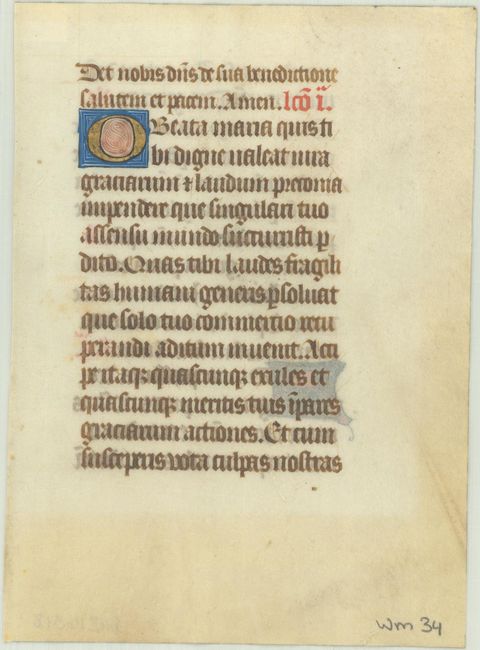 Det nobis dñs de sua benedictione
salutem et pacem. Amen. lcõ ii.
O Beata maria quis ti
bi digne ualeat iura
graciarum ⁊ laudum preconia
impendere que singulari tuo
assensu mundo succurristi ꝑ
dito. Quas tibi laudes fragili
tas humani generis ꝑsoluat
que solo tuo commercio recu
perandi aditum inuenit. Acci
pe itaqꝫ quascunqꝫ exiles et
quascunqꝫ meritis tuis īpares
graciarum actiones. Et cum
susceperis vota culpas nostras
Wm 34